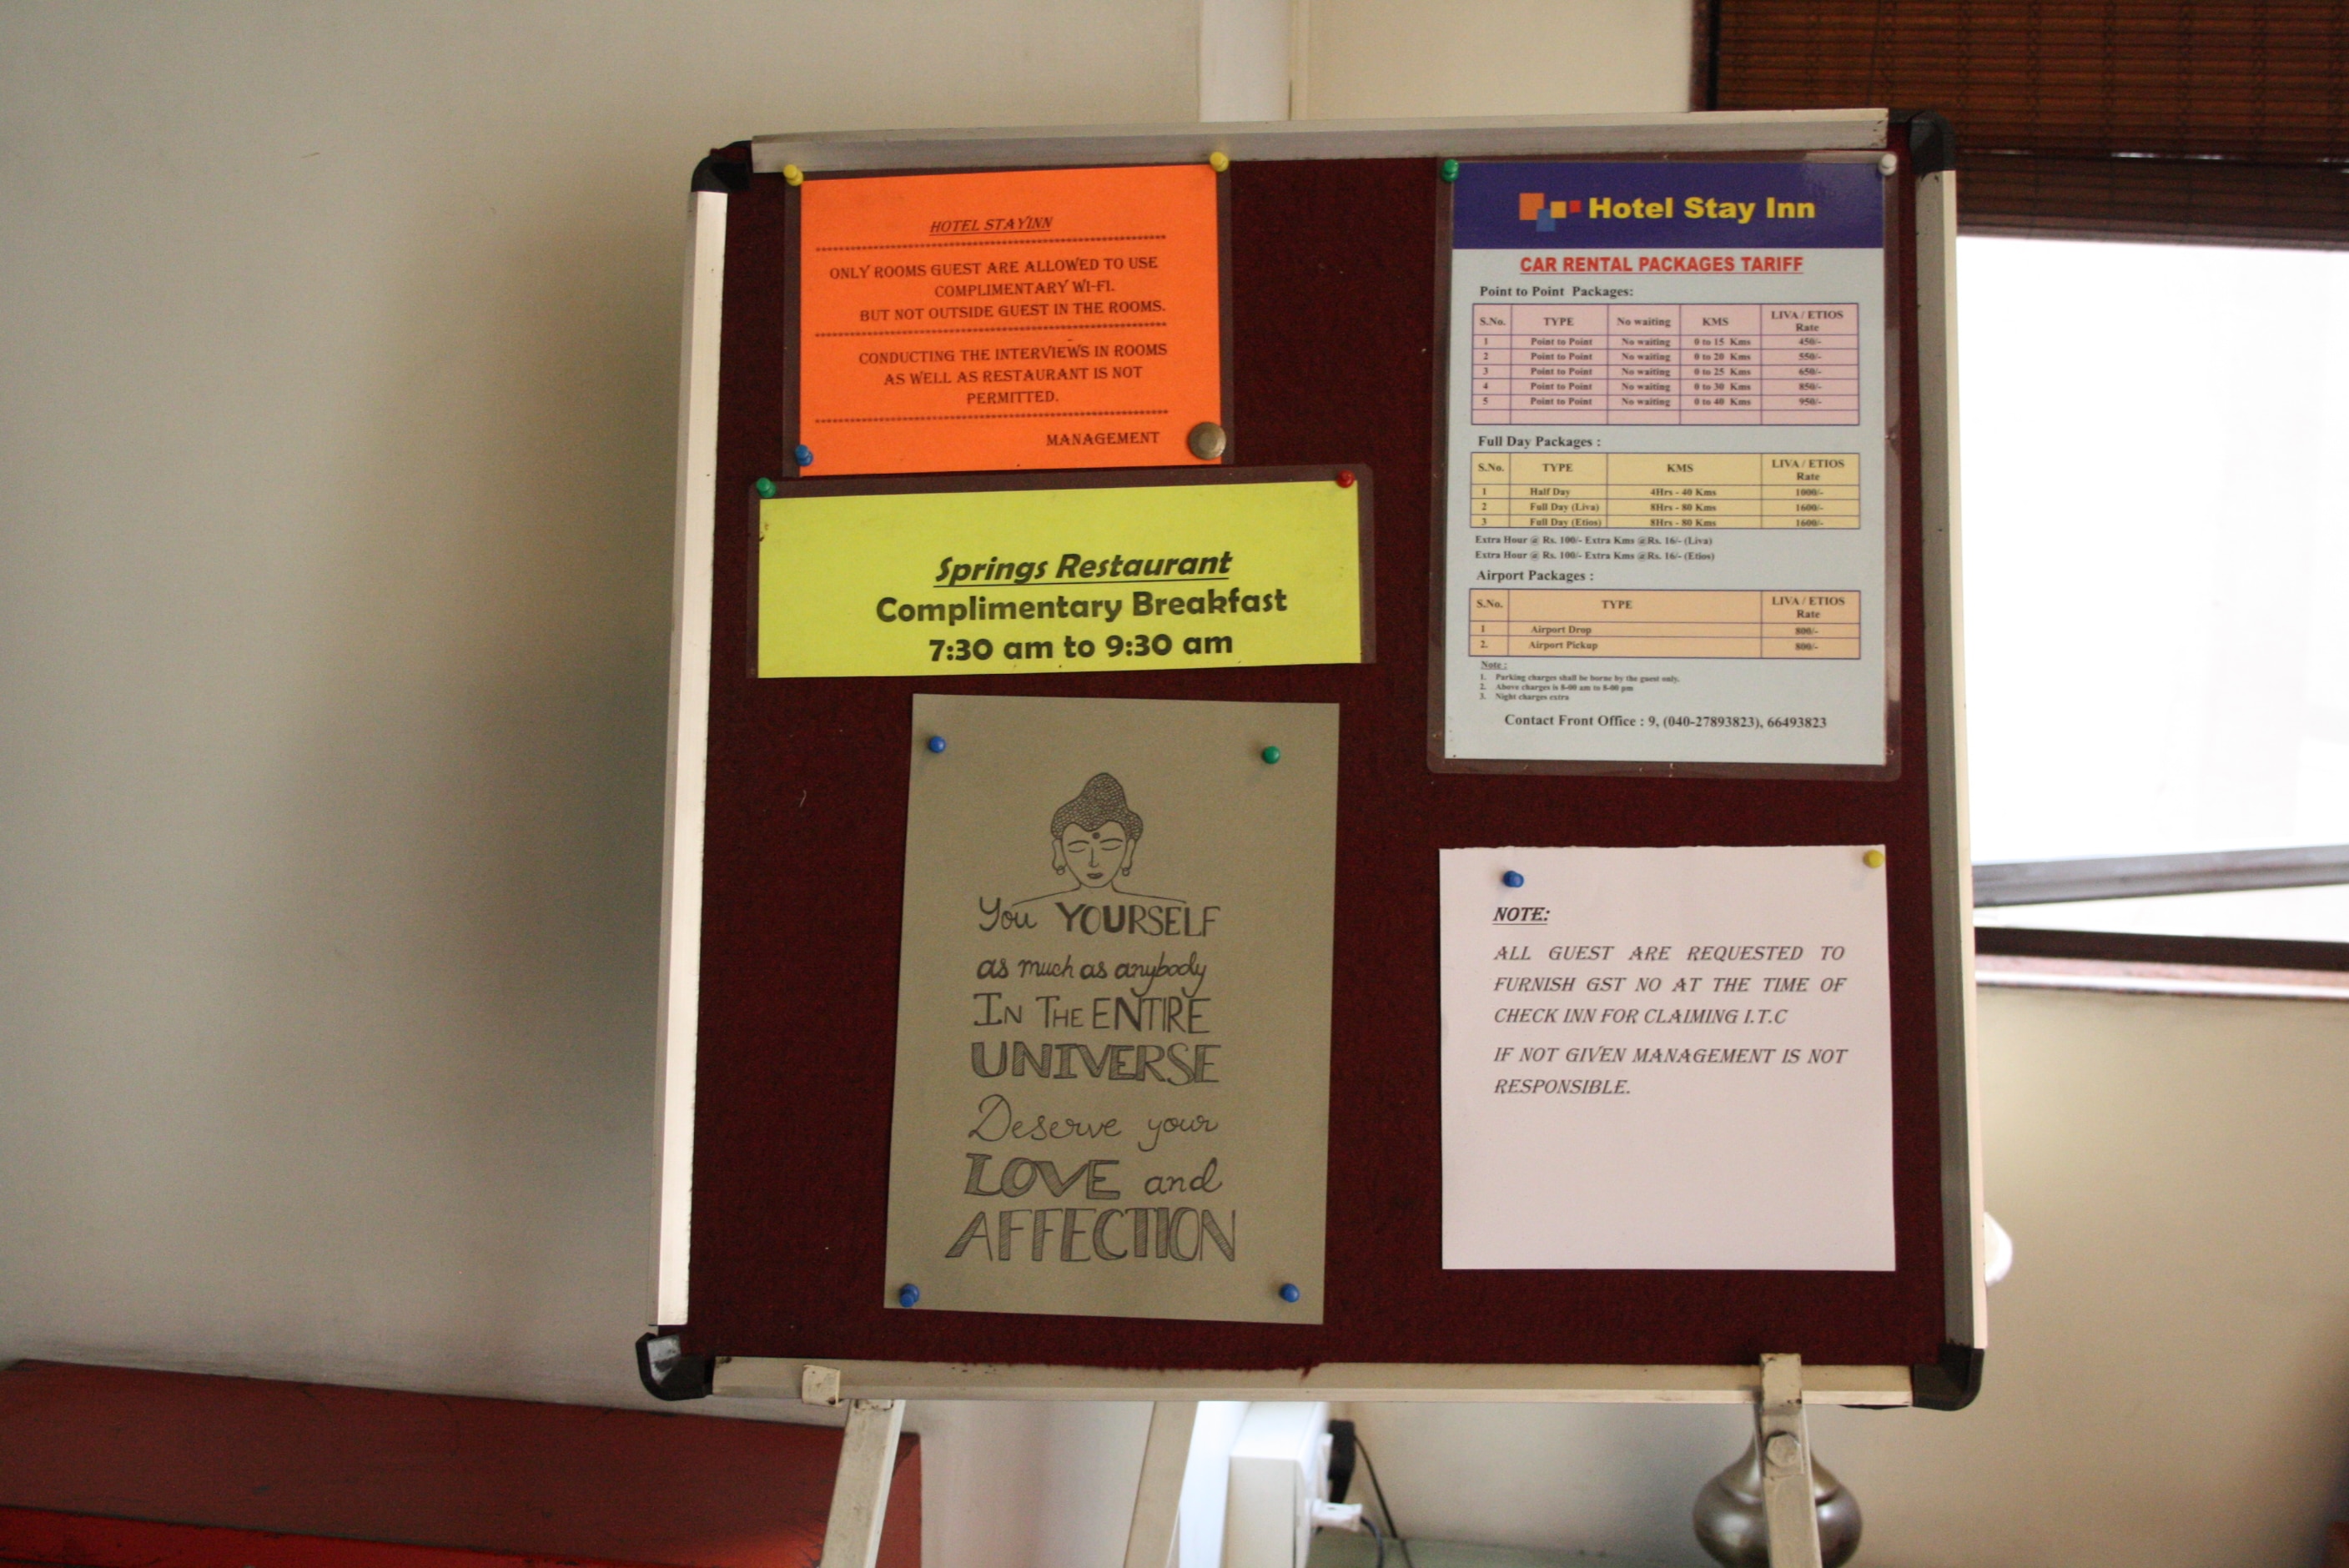 HOTEL STAYINN
ONLY ROOMS GUEST ARE ALLOWED TO USE
COMPLIMENTARY WI-FI.
BUT NOT OUTSIDE GUEST IN THE ROOMS.
CONDUCTING THE INTERVIEWS IN ROOMS
AS WELL AS RESTAURANT IS NOT
PERMITTED.
MANAGEMENT
Springs Restaurant
Complimentary Breakfast
7:30 am to 9:30 am
You YOURSELF
as much as anybody
IN THE ENTIRE
UNIVERSE
Deserve your
LOVE and
AFFECTION
Hotel Stay Inn
CAR RENTAL PACKAGES TARIFF
Point to Point Packages:
S.No. TYPE No waiting KMS LIVA / ETIOS Rate
1 Point to Point No waiting 0 to 15 Kms 450/-
2 Point to Point No waiting 0 to 20 Kms 550/-
3 Point to Point No waiting 0 to 25 Kms 650/-
4 Point to Point No waiting 0 to 30 Kms 850/-
5 Point to Point No waiting 0 to 40 Kms 950/-
Full Day Packages :
S.No. TYPE KMS LIVA / ETIOS Rate
1 Half Day 4Hrs - 40 Kms 1000/-
2 Full Day (Liva) 8Hrs - 80 Kms 1600/-
3 Full Day (Etios) 8Hrs - 80 Kms 1600/-
Extra Hour @ Rs. 100/- Extra Kms @Rs. 16/- (Liva)
Extra Hour @ Rs. 100/- Extra Kms @Rs. 16/- (Etios)
Airport Packages :
S.No. TYPE LIVA / ETIOS Rate
1 Airport Drop 800/-
2. Airport Pickup 800/-
Note :
1. Parking charges shall be borne by the guest only.
2. Above charges is 8-00 am to 8-00 pm
3. Night charges extra
Contact Front Office : 9, (040-27893823), 66493823
NOTE:
ALL GUEST ARE REQUESTED TO
FURNISH GST NO AT THE TIME OF
CHECK INN FOR CLAIMING I.T.C
IF NOT GIVEN MANAGEMENT IS NOT
RESPONSIBLE.